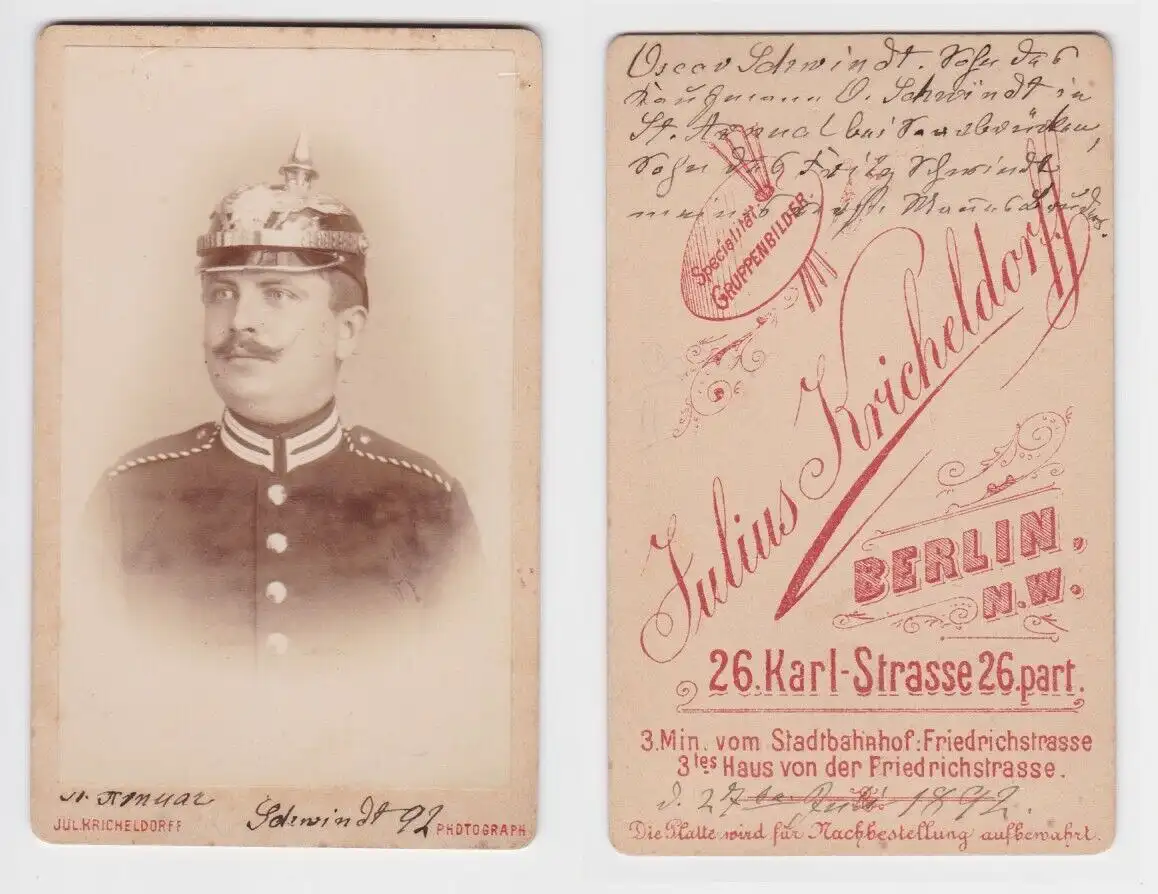 St. Arnual
Schwindt 92
JUL.KRICHELDORFF
PHOTOGRAPH
Oscar Schwindt. Sohn des
Kaufmann O. Schwindt in
St. Arnual bei Saarbrücken,
Sohn des Fritz Schwindt
meines Mannes Bruder.
Specialität
GRUPPENBILDER
Julius Kricheldorff
BERLIN,
N.W.
26. Karl-Strasse 26. part.
3. Min. vom Stadtbahnhof: Friedrichstrasse
3tes Haus von der Friedrichstrasse.
d. 27ten Juli 1892.
Die Platte wird für Nachbestellung aufbewahrt.